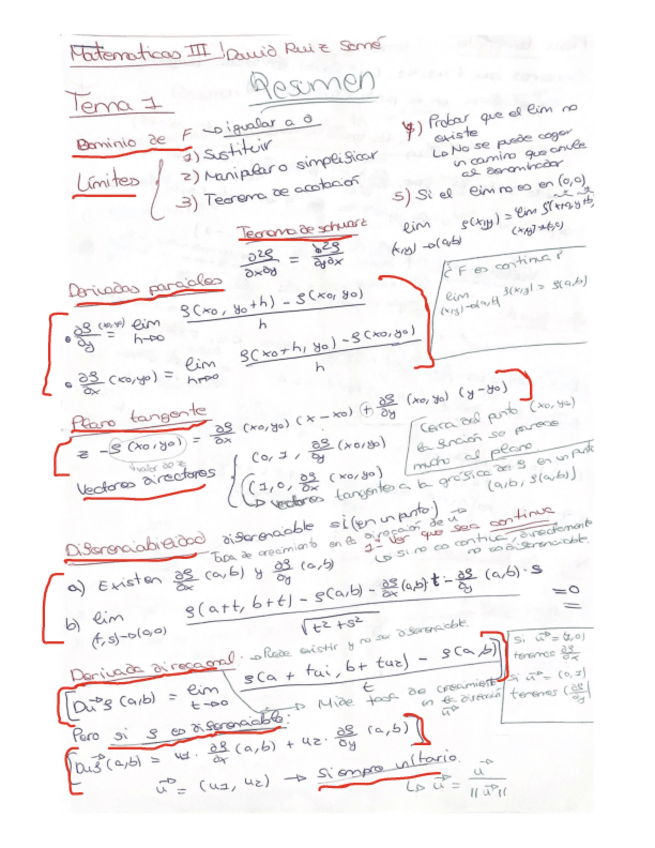 Matematicas III / David Ruiz Somé
Resumen
Tema 1
Dominio de F → igualar a 0
Límites { 1) Sustituir
2) Manipular o simplificar
3) Teorema de acotación
4) Probar que el lim no existe
↳ No se puede coger un camino que anule al denominador
5) Si el lim no es en (0,0)
lim f(x,y) = lim f(x+a, y+b)
(x,y)→(a,b) (x,y)→(0,0)
Teorema de schwarz
∂²f/∂x∂y = ∂²f/∂y∂x
¿F es continua?
lim f(x,y) = f(a,b)
(x,y)→(a,b)
Derivadas parciales
• ∂f/∂y (x0,y0) = lim h→0 (f(x0, y0+h) - f(x0, y0))/h
• ∂f/∂x (x0,y0) = lim h→0 (f(x0+h, y0) - f(x0, y0))/h
Plano tangente
z - f(x0,y0) = ∂f/∂x (x0,y0) (x-x0) + ∂f/∂y (x0,y0) (y-y0)
valor de z
Cerca del punto (x0,y0)
la función se parece
mucho al plano
Vectores directores { (0, 1, ∂f/∂y (x0,y0)
(1, 0, ∂f/∂x (x0,y0)
↳ vectores tangentes a la gráfica de f en un punto
(a,b, f(a,b))
Diferenciabilidad diferenciable si (en un punto:)
Tasa de crecimiento en la dirección de u
1- Ver que sea continua
↳ Si no es continua, directamente
no es diferenciable.
a) Existen ∂f/∂x (a,b) y ∂f/∂y (a,b)
b) lim (t,s)→(0,0) (f(a+t, b+t) - f(a,b) - ∂f/∂x (a,b) t - ∂f/∂y (a,b)·s)/√(t²+s²) = 0
Derivada direccional: → Puede existir y no ser diferenciable.
Du f(a,b) = lim t→0 (f(a + tu1, b + tu2) - f(a,b))/t
→ Mide tasa de crecimiento
en la dirección u
Si u = (1,0)
tenemos ∂f/∂x
Si u = (0,1)
tenemos (∂f/∂y)
Pero si f es diferenciable:
Du f(a,b) = u1 · ∂f/∂x (a,b) + u2 · ∂f/∂y (a,b)
u = (u1, u2) → siempre unitario.
↳ u = u/||u||